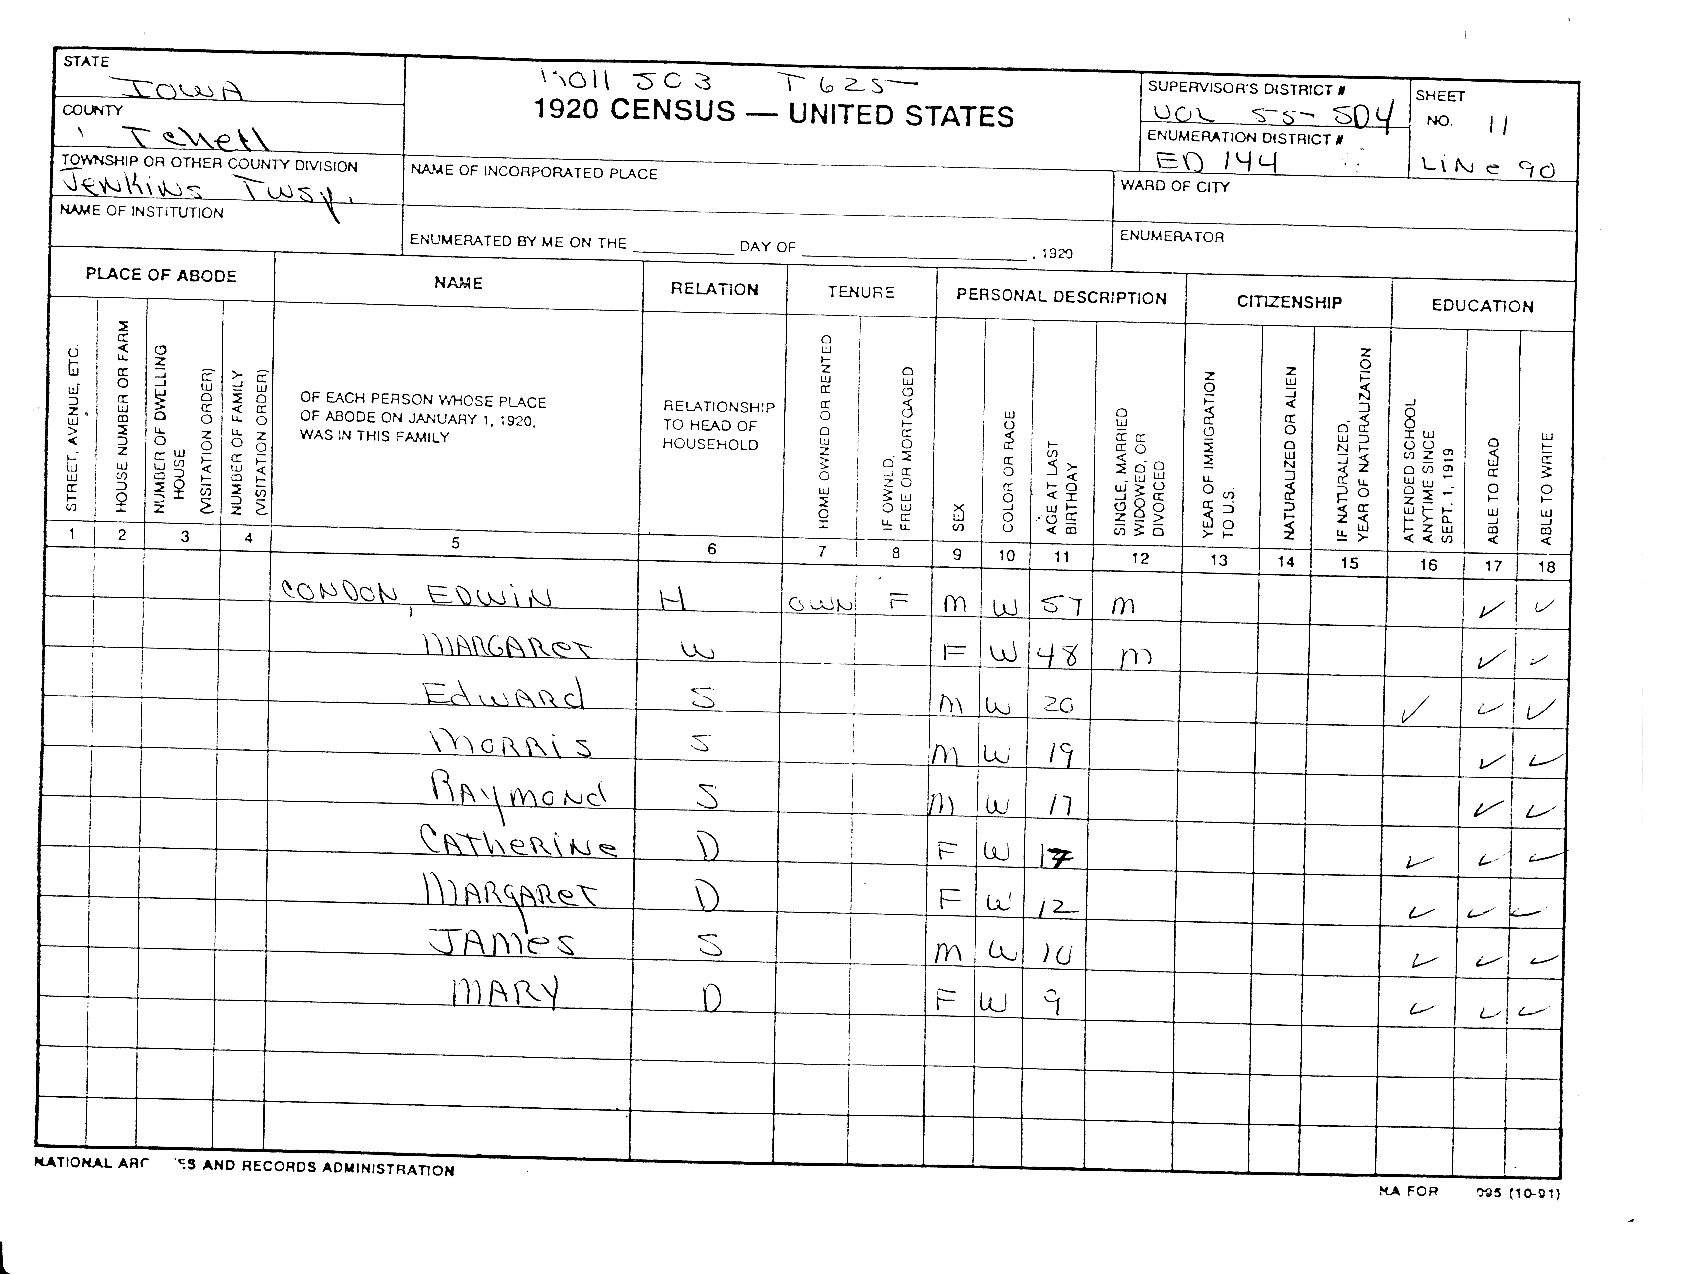 STATE
IOWA
COUNTY
TOWNSHIP OR OTHER COUNTY DIVISION
JeNKiNS TWSP.
NAME OF INSTITUTION
T625
1920 CENSUS — UNITED STATES
NAME OF INCORPORATED PLACE
ENUMERATED BY ME ON THE ________ DAY OF ________________ , 1920
SUPERVISOR'S DISTRICT #
VOL 55- 504
ENUMERATION DISTRICT #
ED 144
SHEET
NO. 11
LiNe 90
WARD OF CITY
ENUMERATOR
PLACE OF ABODE NAME RELATION TENURE PERSONAL DESCRIPTION CITIZENSHIP EDUCATION
STREET, AVENUE, ETC.
HOUSE NUMBER OR FARM
NUMBER OF DWELLING
HOUSE
(VISITATION ORDER)
NUMBER OF FAMILY
(VISITATION ORDER)
OF EACH PERSON WHOSE PLACE
OF ABODE ON JANUARY 1, 1920,
WAS IN THIS FAMILY
RELATIONSHIP
TO HEAD OF
HOUSEHOLD
HOME OWNED OR RENTED
IF OWNED,
FREE OR MORTGAGED
SEX
COLOR OR RACE
AGE AT LAST
BIRTHDAY
SINGLE, MARRIED
WIDOWED, OR
DIVORCED
YEAR OF IMMIGRATION
TO U.S.
NATURALIZED OR ALIEN
IF NATURALIZED,
YEAR OF NATURALIZATION
ATTENDED SCHOOL
ANYTIME SINCE
SEPT. 1, 1919
ABLE TO READ
ABLE TO WRITE
1 2 3 4 5 6 7 8 9 10 11 12 13 14 15 16 17 18
CONDON, EDWiN H OWN F M W 57 M ✓ ✓
MARGAReT W F W 48 M ✓ ✓
EdWARd S M W 20 ✓ ✓ ✓
MORRiS S M W 19 ✓ ✓
RAyMONd S M W 17 ✓ ✓
CATHeRiNe D F W 17 ✓ ✓ ✓
MARGAReT D F W 12 ✓ ✓ ✓
JAMeS S M W 10 ✓ ✓ ✓
MARY D F W 9 ✓ ✓ ✓
NATIONAL ARC ES AND RECORDS ADMINISTRATION
NA FOR 095 (10-91)